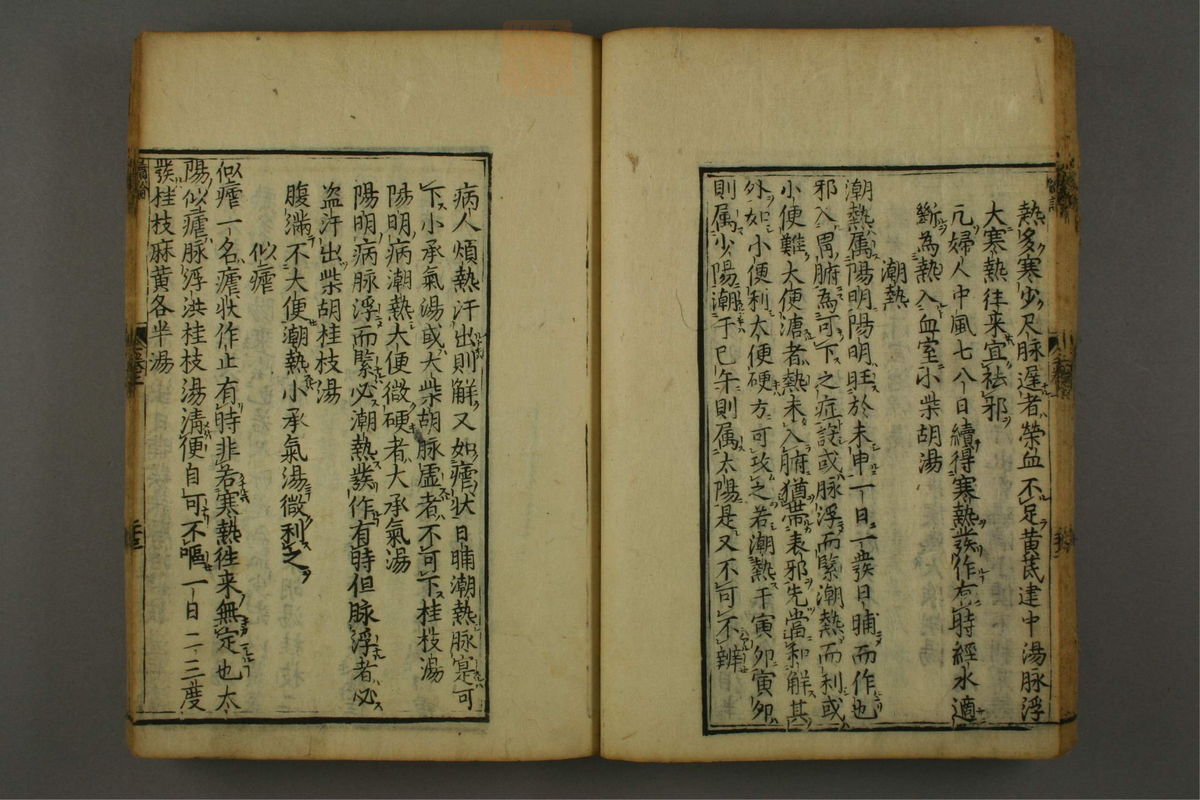 熱多寒少尺脉遅者榮血不足黄芪建中湯脉浮
大寒熱徃来宜祛邪
一婦人中風七八日續得寒熱發作有時經水適
斷為熱入血室小柴胡湯
潮熱
潮熱属陽明陽明旺於未申一日一發日晡而作也
邪入胃腑為可下之症設或脉浮而緊潮熱而利或
小便難大便溏者熱未入腑猶帯表邪先當和解其
外如小便利大便硬方可攻之若潮熱于寅卯寅卯
則属少陽潮于巳午則属太陽是又不可不辨
病人煩熱汗出則解又如瘧状日晡潮熱脉寔可
下小承氣湯或大柴胡脉虚者不可下桂枝湯
陽明病潮熱大便微硬者大承氣湯
陽明病脉浮而緊必潮熱發作有時但脉浮者必
盗汗出柴胡桂枝湯
腹滿不大便潮熱小承氣湯微利之
似瘧
似瘧一名瘧状作止有時非若寒熱徃来無定也太
陽似瘧脉浮洪桂枝湯清便自可不嘔一日二三度
發桂枝麻黄各半湯